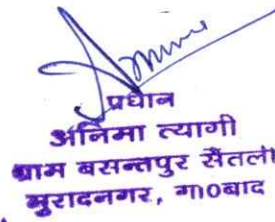 प्रधान
अनिमा त्यागी
ग्राम बसन्तपुर सैंतली
मुरादनगर, गा०बाद